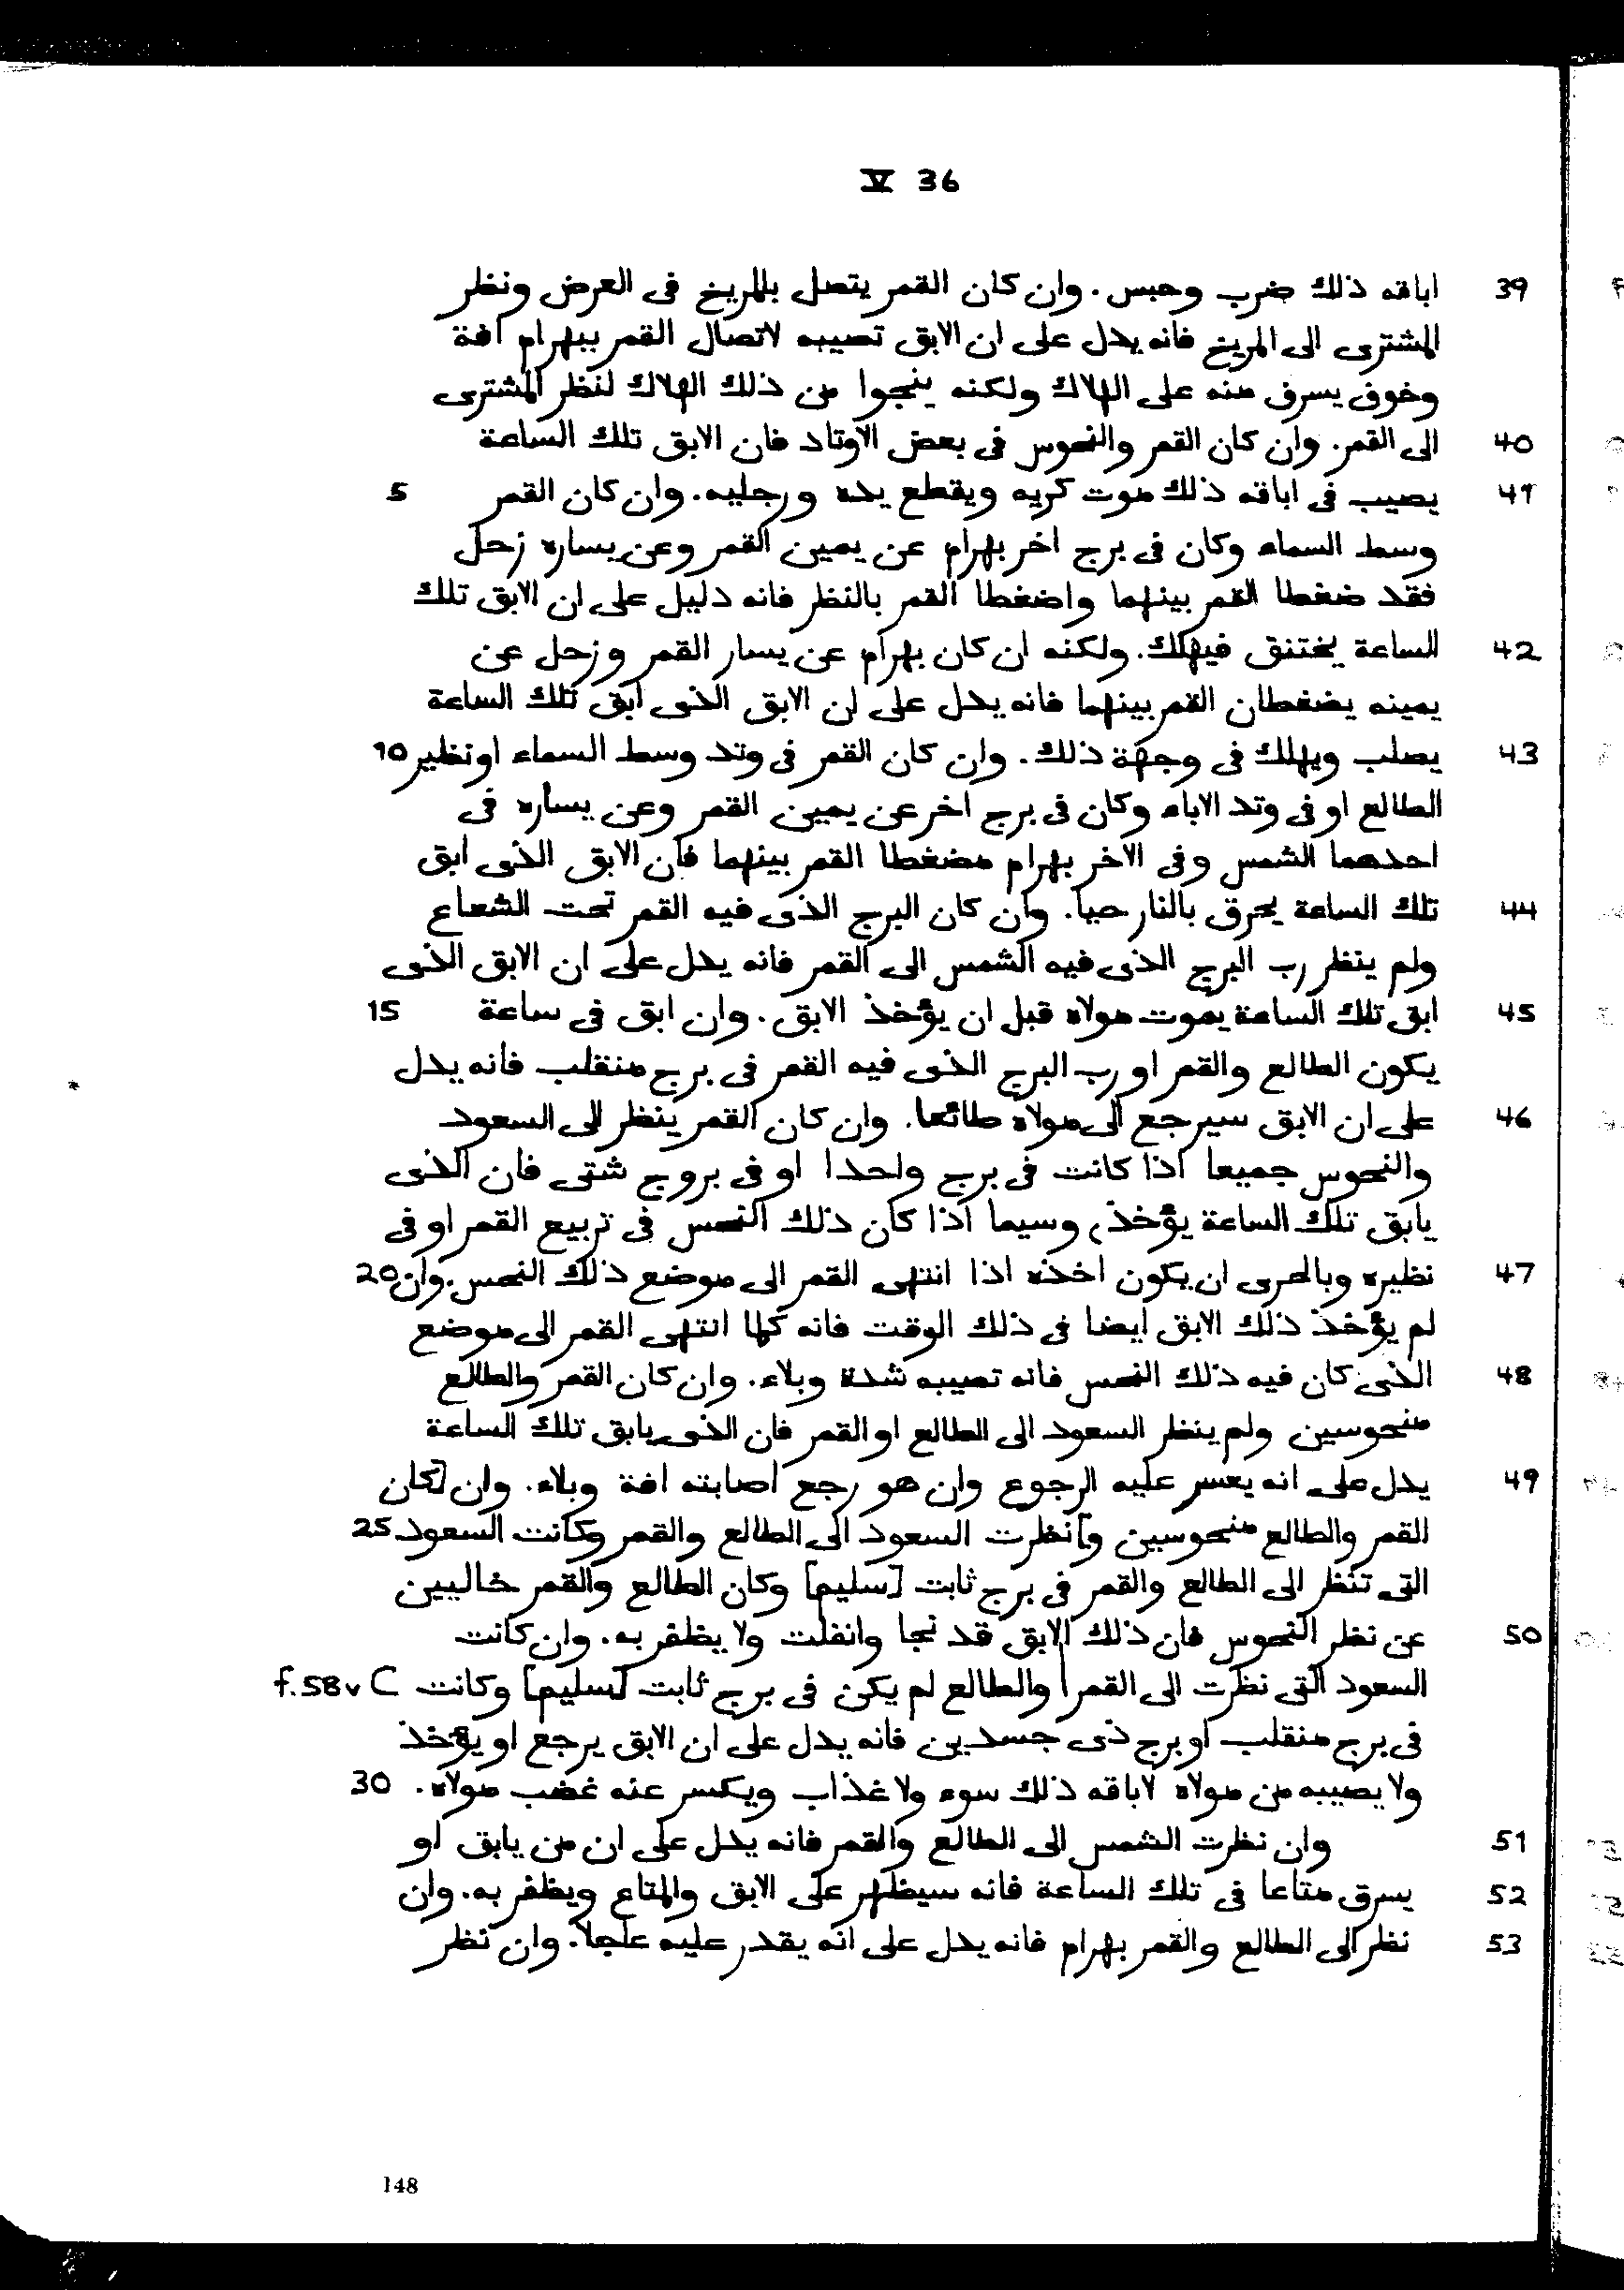 V 36
39 اباقه ذلك ضرب وحبس. وان كان القمر يتصل بالمريخ فى العرض ونظر
المشترى الى المريخ فانه يدل على ان الابق تصيبه لاتصال القمر ببهرام افة
وخوف يسرف منه على الهلاك ولكنه ينجوا من ذلك الهلاك لنظر المشترى
40 الى القمر. وان كان القمر والنحوس فى بعض الاوتاد فان الابق تلك الساعة
41 يصيب فى اباقه ذلك موت كريه ويقطع يده ورجليه. وان كان القمر 5
وسط السماء وكان فى برج اخر بهرام عن يمين القمر وعن يساره زحل
فقد ضغطا القمر بينهما واضغطا القمر بالنظر فانه دليل على ان الابق تلك
42 الساعة يختنق فيهلك. ولكنه ان كان بهرام عن يسار القمر وزحل عن
يمينه يضغطان القمر بينهما فانه يدل على ان الابق الذى ابق تلك الساعة
43 يصلب ويهلك فى وجهة ذلك. وان كان القمر فى وتد وسط السماء او نظير 10
الطالع او فى وتد الاباء وكان فى برج اخر عن يمين القمر وعن يساره فى
احدهما الشمس وفى الاخر بهرام مضغطا القمر بينهما فان الابق الذى ابق
44 تلك الساعة يحرق بالنار حيا. وان كان البرج الذى فيه القمر تحت الشعاع
ولم ينظر رب البرج الذى فيه الشمس الى القمر فانه يدل على ان الابق الذى
45 ابق تلك الساعة يموت مولاه قبل ان يؤخذ الابق. وان ابق فى ساعة 15
يكون الطالع والقمر او رب البرج الذى فيه القمر فى برج منقلب فانه يدل
46 على ان الابق سيرجع الى مولاه طائعا. وان كان القمر ينظر الى السعود
والنحوس جميعا اذا كانت فى برج واحدا او فى بروج شتى فان الذى
يابق تلك الساعة يؤخذ، وسيما اذا كان ذلك النحس فى تربيع القمر او فى
47 نظيره وبالحرى ان يكون اخذه اذا انتهى القمر الى موضع ذلك النحس. وان 20
لم يؤخذ ذلك الابق ايضا فى ذلك الوقت فانه كلما انتهى القمر الى موضع
48 الذى كان فيه ذلك النحس فانه تصيبه شدة وبلاء. وان كان القمر والطالع
منحوسين ولم ينظر السعود الى الطالع او القمر فان الذى يابق تلك الساعة
49 يدل على انه يعسر عليه الرجوع وان هو رجع اصابته افة وبلاء. وان [كان
القمر والطالع منحوسين و] نظرت السعود الى الطالع والقمر وكانت السعود 25
التى تنظر الى الطالع والقمر فى برج ثابت [سليم] وكان الطالع والقمر خاليين
50 عن نظر النحوس فان ذلك الابق قد نجا وانفلت ولا يظفر به. وان كانت
السعود التى نظرت الى القمر| والطالع لم يكن فى برج ثابت [سليم] وكانت f.58v C
فى برج منقلب او برج ذى جسدين فانه يدل على ان الابق يرجع او يؤخذ
ولا يصيبه من مولاه لاباقه ذلك سوء ولا عذاب ويكسر عنه غضب مولاه. 30
51 وان نظرت الشمس الى الطالع والقمر فانه يدل على ان من يابق او
52 يسرق متاعا فى تلك الساعة فانه سيظهر على الابق والمتاع ويظفر به. وان
53 نظر الى الطالع والقمر بهرام فانه يدل على انه يقدر عليه عاجلا. وان نظر
148